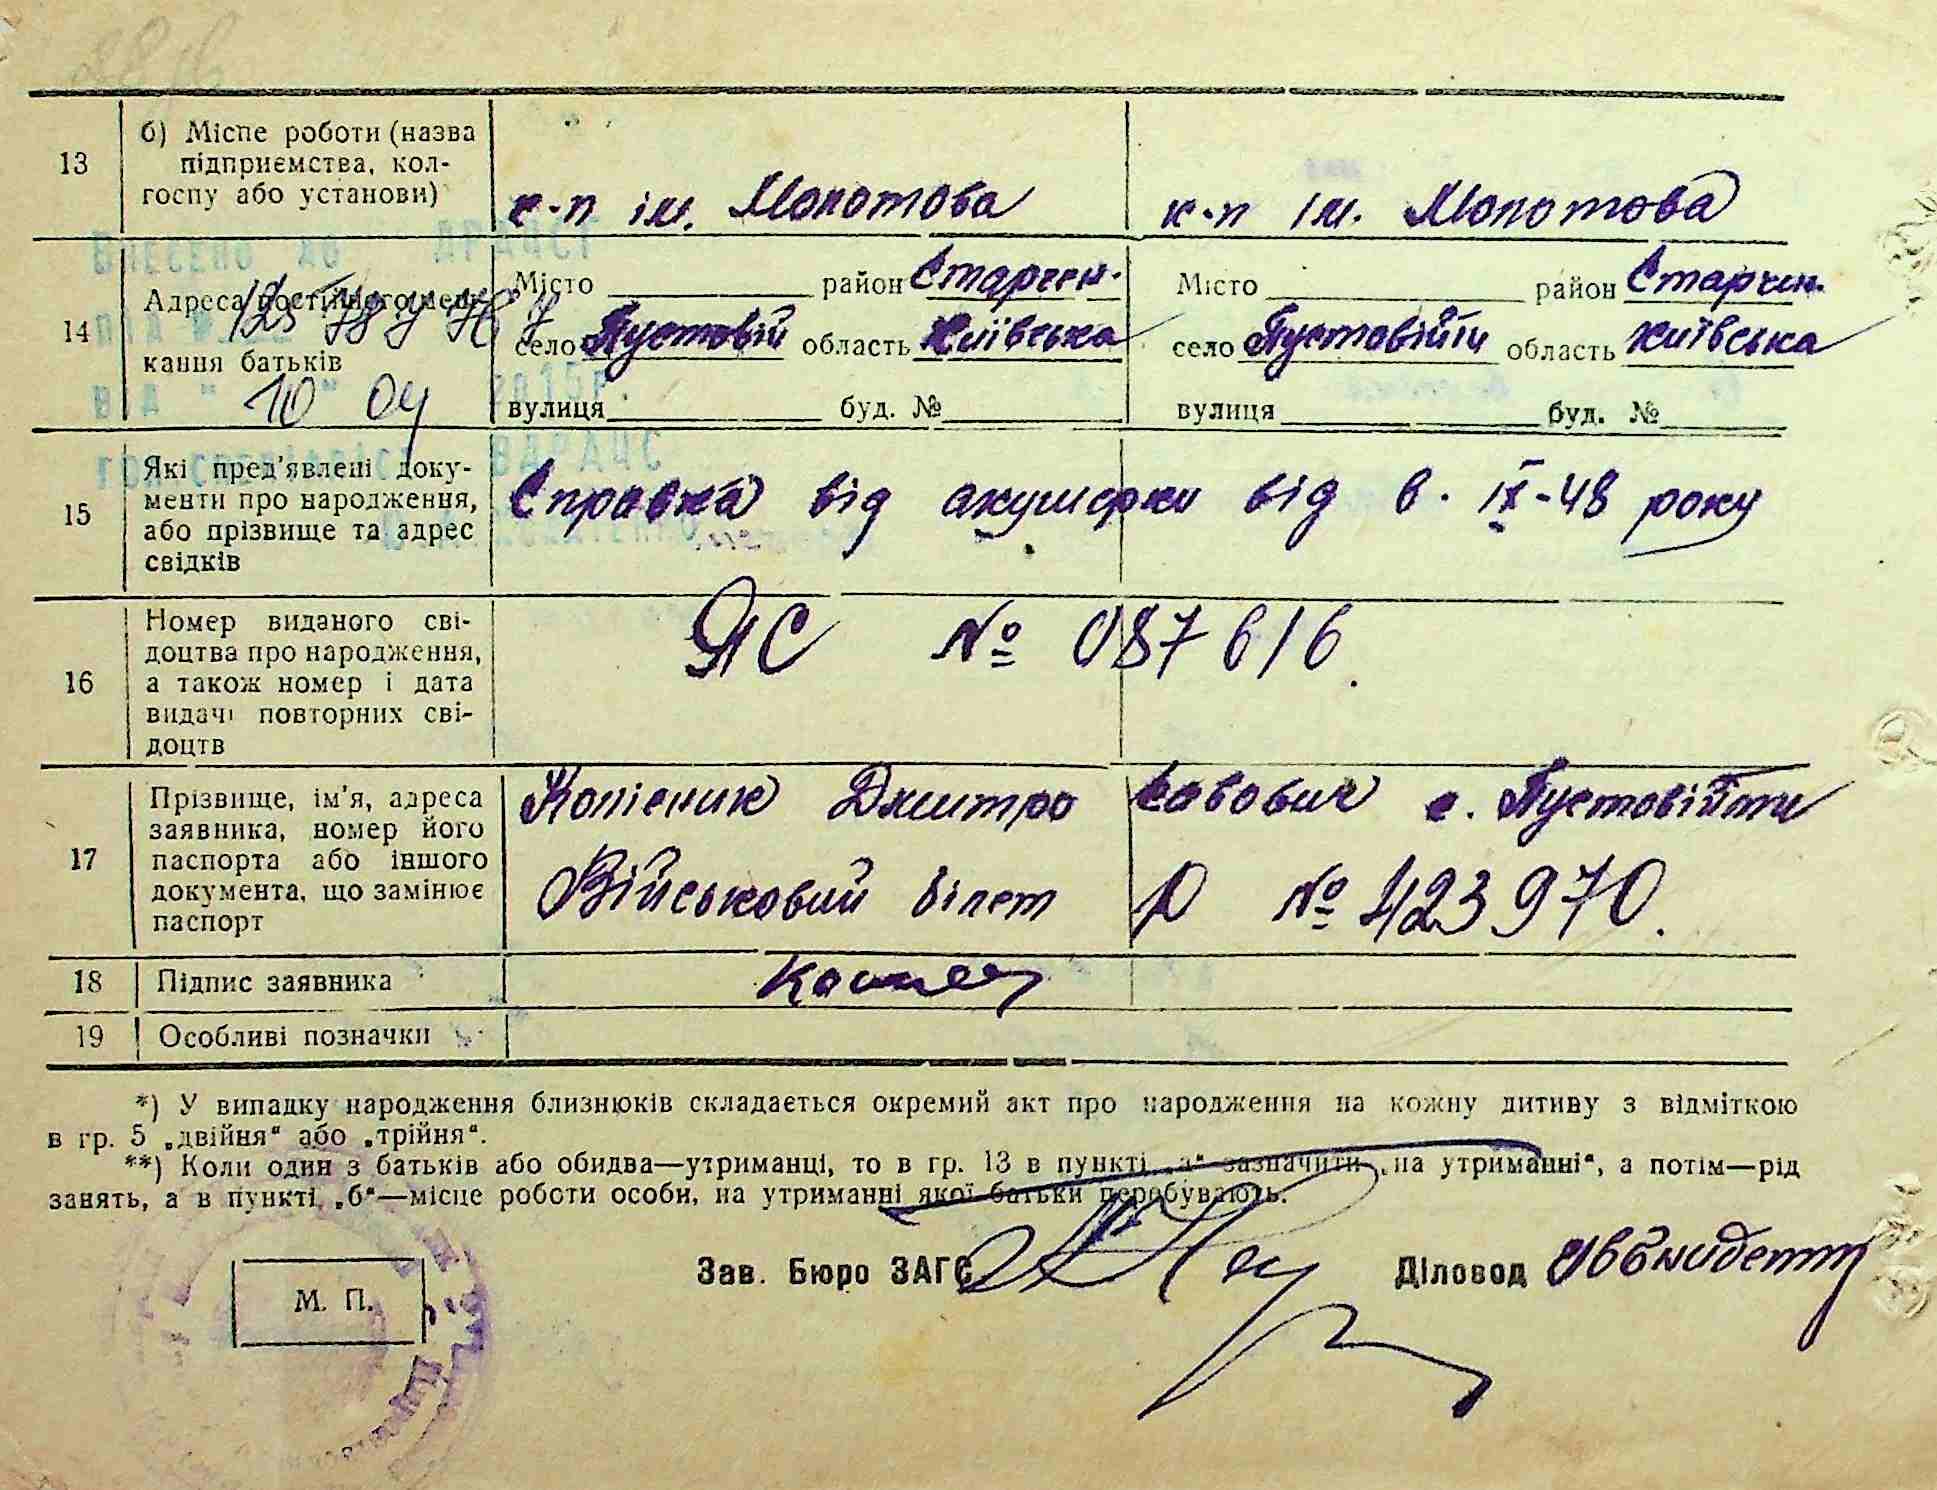 13
б) Місце роботи (назва
підприємства, кол-
госпу або установи)
к-п ім. Молотова
к-п ім. Молотова
14
Адреса постійного меш-
кання батьків
Місто район Старчен.
село Пустовій область Київська
вулиця буд. №
Місто район Старчен.
село Пустовійти область Київська
вулиця буд. №
Внесено до ДРАЦСГ
10 04 2015р.
ВДРАЦС
15
Які пред'явлені доку-
менти про народження,
або прізвище та адрес
свідків
Справка від акушерки від 6. ІХ-48 року
16
Номер виданого сві-
доцтва про народження,
а також номер і дата
видачі повторних сві-
доцтв
ЯС № 087616.
17
Прізвище, ім'я, адреса
заявника, номер його
паспорта або іншого
документа, що замінює
паспорт
Колісник Дмитро Савович с. Пустовійти
Військовий білет Р № 423970.
18
Підпис заявника
19
Особливі позначки
*) У випадку народження близнюків складається окремий акт про народження на кожну дитину з відміткою
в гр. 5 „двійня“ або „трійня“.
**) Коли один з батьків або обидва—утриманці, то в гр. 13 в пункті „а“ зазначити „на утриманні“, а потім—рід
занять, а в пункті „б“—місце роботи особи, на утриманні якої батьки перебувають.
М. П.
Зав. Бюро ЗАГС
Діловод